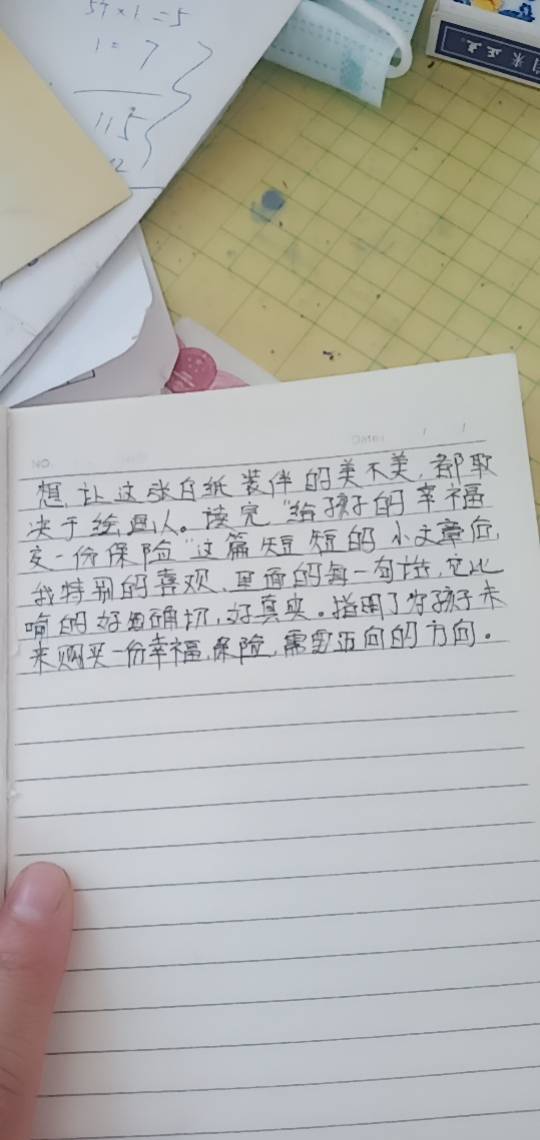 57×1=5
1= 7
115
自来正大
NO.
Date: / /
想,让这张白纸装伴的美不美,都取
决于绘画人。读完“给孩子的幸福
交一份保险”这篇短短的小文章后,
我特别的喜观,里面的每一句话,它比
喻的好的确切,好真实。指明了为孩子未
来购买一份幸福,保险,需要迈向的方向。